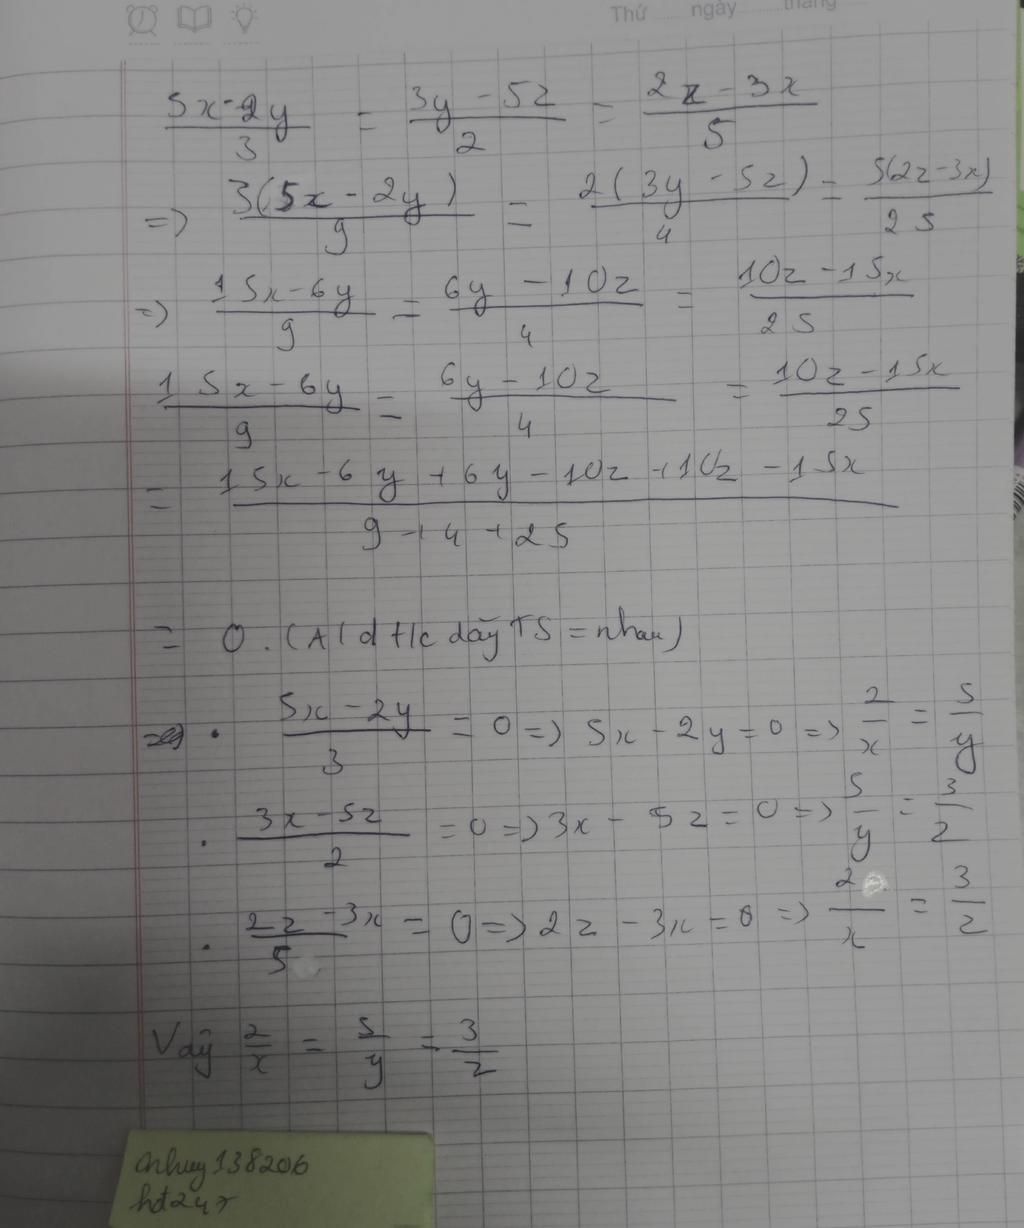 Thứ ngày tháng
(5x-2y)/3 = (3y-5z)/2 = (2z-3x)/5
=> 3(5x-2y)/9 = 2(3y-5z)/4 = 5(2z-3x)/25
=> (15x-6y)/9 = (6y-10z)/4 = (10z-15x)/25
(15x-6y)/9 = (6y-10z)/4 = (10z-15x)/25
= (15x-6y+6y-10z+10z-15x)/(9+4+25)
= 0. (A/d t/c dãy TS = nhau)
• (5x-2y)/3 = 0 => 5x-2y=0 => 2/x = 5/y
• (3x-5z)/2 = 0 => 3x-5z=0 => 5/y = 3/z
• (2z-3x)/5 = 0 => 2z-3x=0 => 2/x = 3/z
Vậy 2/x = 5/y = 3/z
nhuy138206
hd247